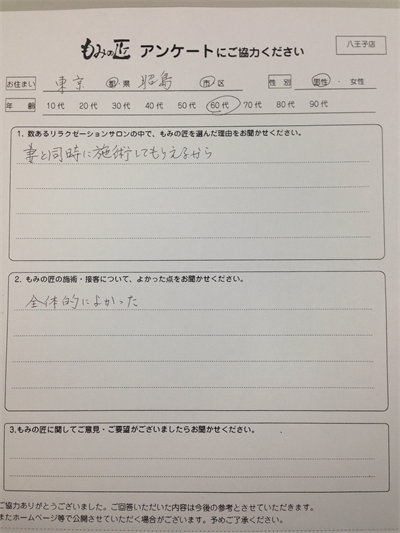 もみの匠 アンケートにご協力ください
八王子店
お住まい 東京 都・県 昭島 市・区 性別 男性・女性
年齢 10代 20代 30代 40代 50代 60代 70代 80代 90代
1. 数あるリラクゼーションサロンの中で、もみの匠を選んだ理由をお聞かせください。
妻と同時に施術してもらえるから
2. もみの匠の施術・接客について、よかった点をお聞かせください。
全体的によかった
3.もみの匠に関してご意見・ご要望がございましたらお聞かせください。
ご協力ありがとうございました。ご回答いただいた内容は今後の参考とさせていただきます。
またホームページ等で公開させていただく場合がございます。予めご了承ください。